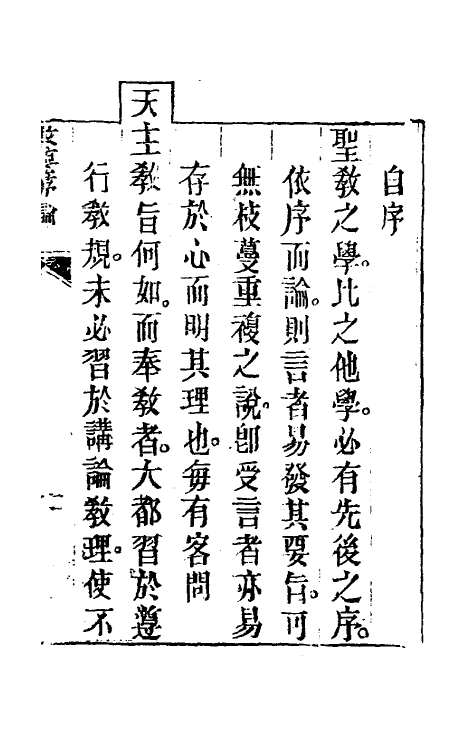 自序
聖教之學。比之他學。必有先後之序。
依序而論。則言者易發其要旨。可
無枝蔓重複之說。卽受言者亦易
存於心而明其理也。每有客問
天主教旨何如。而奉教者。大都習於遵
行教規。未必習於講論教理。使不